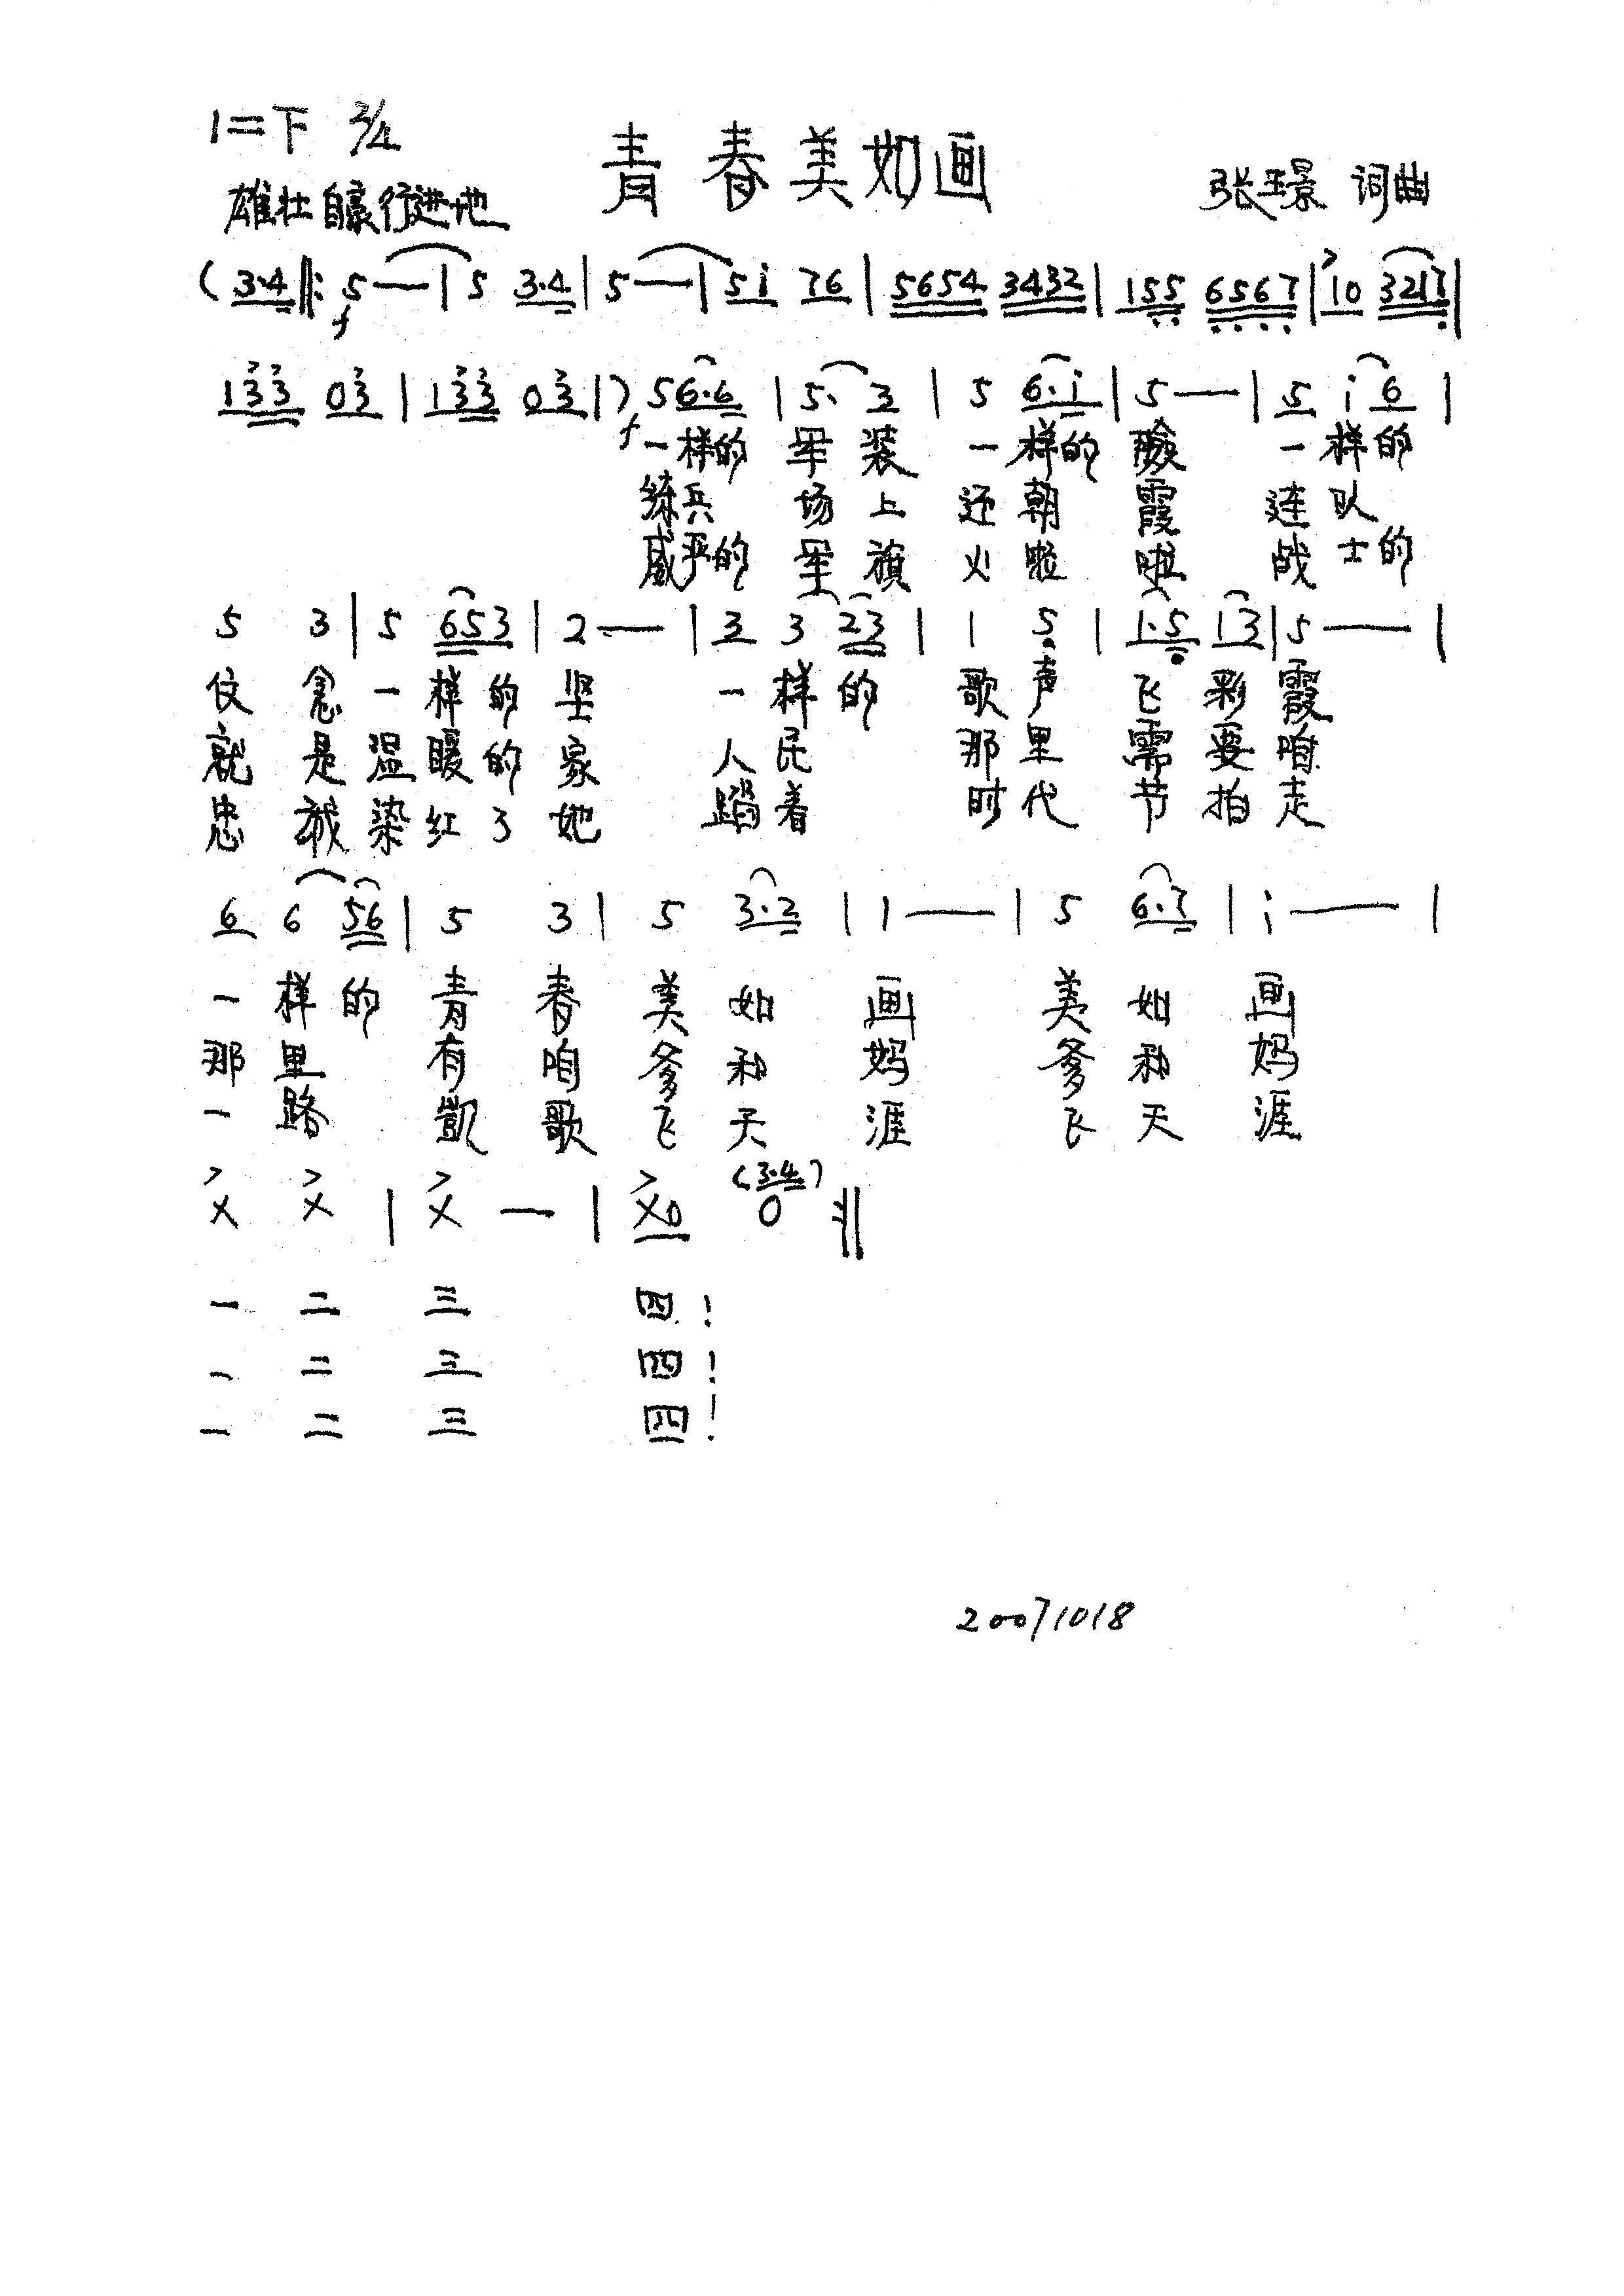 1=下 2/4
青春美如画
雄壮自豪行进地
张璟 词曲
( 3·4 ‖: 5 — | 5 3·4 | 5 — | 5i 76 | 5654 3432 | 155 6567 | 10 3217 |
f
133 03 | 133 03 | ) 5 6·6 | 5· 3 | 5 6·i | 5 — | 5 i 6 |
f 一样的 军装 一样的 臉 一样的
练兵 场上 迎朝 霞 连队
威严的 军旗 火啦 啦 战士的
5 3 | 5 653 | 2 — | 3 3 23 | 1 5 | 1·5 13 | 5 — |
信念 一样的 坚 一样的 歌声 飞彩霞
就是 温暖的 家 人民 那里 需要咱
忠诚 染红了 她 踏着 时代 节拍走
6 6 56 | 5 3 | 5 3·2 | 1 — | 5 6·7 | i — |
一样的 青春 美如 画 美如 画
那里 有咱 爹和 妈 爹和 妈
一路 凱歌 飞天 涯 飞天 涯
(3·4)
X X | X — | X0 0 :‖
一 二 三 四!
一 二 三 四!
一 二 三 四!
20071018